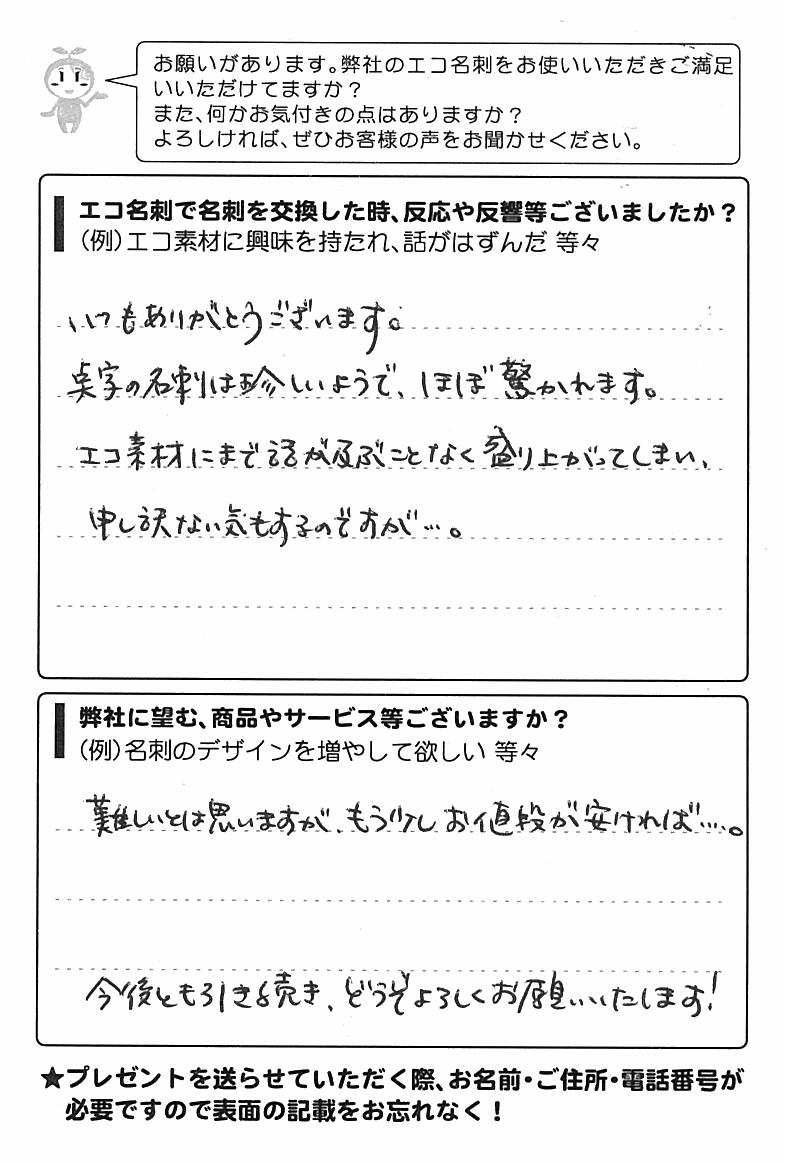 お願いがあります。弊社のエコ名刺をお使いいただきご満足
いいただけてますか？
また、何かお気付きの点はありますか？
よろしければ、ぜひお客様の声をお聞かせください。
エコ名刺で名刺を交換した時、反応や反響等ございましたか？
（例）エコ素材に興味を持たれ、話がはずんだ 等々
いつもありがとうございます。
点字の名刺は珍しいようで、ほぼ驚かれます。
エコ素材にまで話が及ぶことなく盛り上がってしまい、
申し訳ない気もするのですが…。
弊社に望む、商品やサービス等ございますか？
（例）名刺のデザインを増やして欲しい 等々
難しいとは思いますが、もう少しお値段が安ければ…。
今後とも引き続き、どうぞよろしくお願いいたします！
★プレゼントを送らせていただく際、お名前・ご住所・電話番号が
必要ですので表面の記載をお忘れなく！